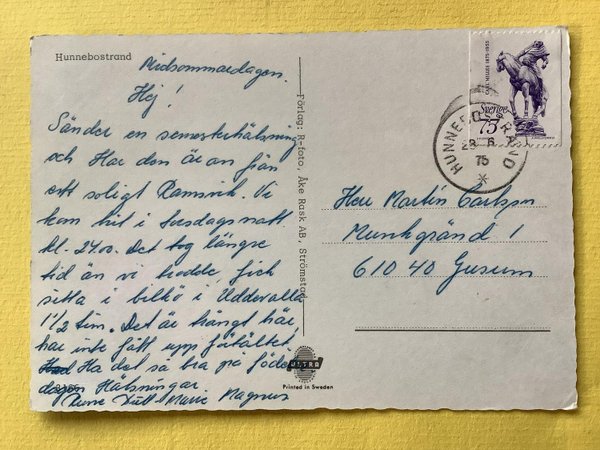 Hunnebostrand
Midsommardagen.
Hej!
Sänder en semesterhälsning
och Har den är an från
ett soligt Ramsvik. Vi
kom hit i torsdags natt
kl. 24.00. Det tog längre
tid än vi trodde, fick
sitta i bilkö i Uddevalla
1 1/2 tim. Det är trångt här,
har inte fått upp förtältet.
Ha det så bra på föde
dagen Hälsningar.
Marie Magnus
Förlag: R-foto, Åke Rask AB, Strömstad
ULTRA
Printed in Sweden
CARL MILLES 1875-1955
Sverige
75
HUNNEBOSTRAND
75
Herr Martin Carlsson
Munkgränd 1
610 40 Gusum